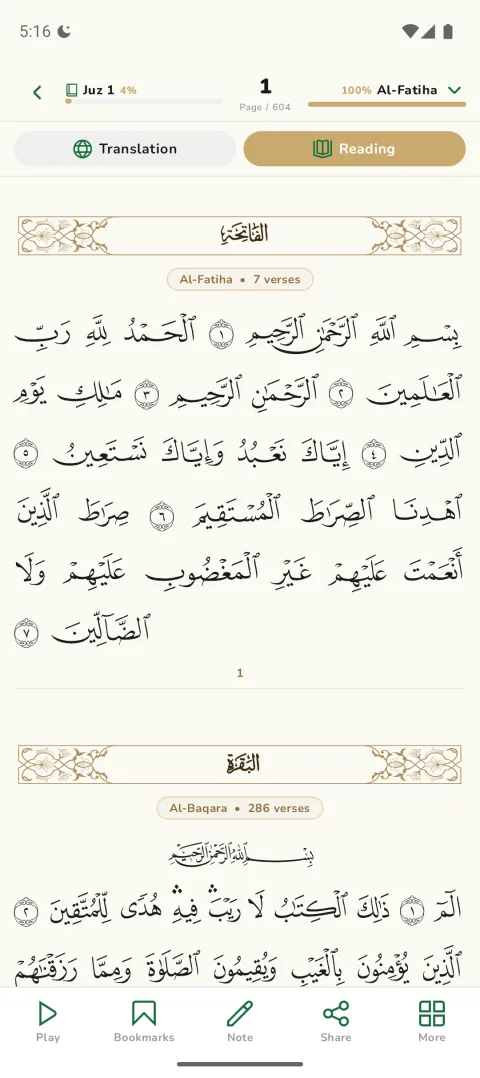 5:16
Juz 1 4%
1
Page / 604
100% Al-Fatiha
Translation
Reading
الفاتحة
Al-Fatiha • 7 verses
بِسْمِ ٱللَّهِ ٱلرَّحْمَٰنِ ٱلرَّحِيمِ ١ ٱلْحَمْدُ لِلَّهِ رَبِّ
ٱلْعَٰلَمِينَ ٢ ٱلرَّحْمَٰنِ ٱلرَّحِيمِ ٣ مَٰلِكِ يَوْمِ
ٱلدِّينِ ٤ إِيَّاكَ نَعْبُدُ وَإِيَّاكَ نَسْتَعِينُ ٥
ٱهْدِنَا ٱلصِّرَٰطَ ٱلْمُسْتَقِيمَ ٦ صِرَٰطَ ٱلَّذِينَ
أَنْعَمْتَ عَلَيْهِمْ غَيْرِ ٱلْمَغْضُوبِ عَلَيْهِمْ وَلَا
ٱلضَّآلِّينَ ٧
1
البقرة
Al-Baqara • 286 verses
بِسْمِ ٱللَّهِ ٱلرَّحْمَٰنِ ٱلرَّحِيمِ
الٓمٓ ١ ذَٰلِكَ ٱلْكِتَٰبُ لَا رَيْبَ ۛ فِيهِ ۛ هُدًى لِّلْمُتَّقِينَ ٢
ٱلَّذِينَ يُؤْمِنُونَ بِٱلْغَيْبِ وَيُقِيمُونَ ٱلصَّلَوٰةَ وَمِمَّا رَزَقْنَٰهُمْ
Play
Bookmarks
Note
Share
More